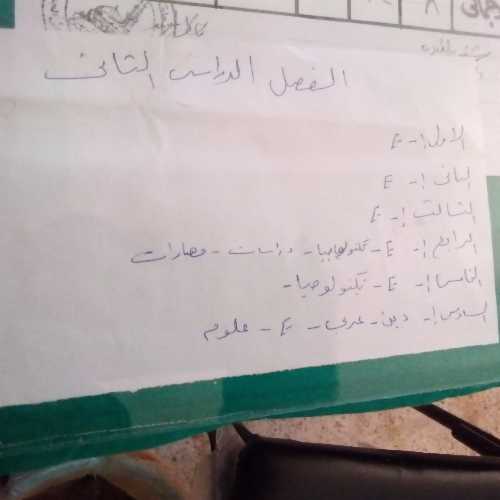 الفصل الدراسى الثانى
الاول :- E
الثانى :- E
الثالث :- E
الرابع :- E - تكنولوجيا - دراسات - مهارات
الخامس :- E - تكنولوجيا -
السادس :- دين - عربى - E - علوم